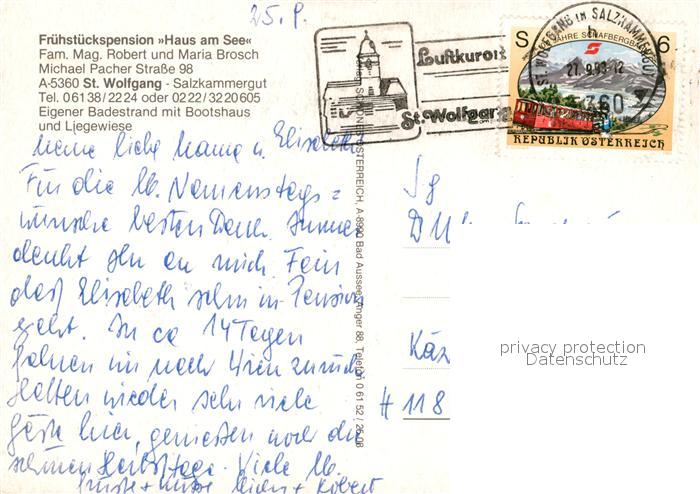 25. P.
Frühstückspension »Haus am See«
Fam. Mag. Robert und Maria Brosch
Michael Pacher Straße 98
A-5360 St. Wolfgang - Salzkammergut
Tel. 0 61 38 / 22 24 oder 02 22 / 3 22 06 05
Eigener Badestrand mit Bootshaus
und Liegewiese
Luftkurort
St. Wolfgang
ST. WOLFGANG IM SALZKAMMERGUT
27. 9. 93-12
5360
S 6
JAHRE SCHAFBERGBAHN
REPUBLIK ÖSTERREICH
Meine liebe Mama u. Elisabeth
Für die lb. Namenstags=
wünsche besten Dank. Immer
denkt ihr an mich. Fein
daß Elisabeth schon in Pension
geht. In ca 14 Tagen
fahren wir nach Wien zurück
Hatten wieder sehr viele
Gäste hier, geniessen noch die
schönen Herbsttage. Viele lb.
Grüße + Küsse + Robert
ÖSTERREICH, A-8990 Bad Aussee, Anger 88, Telefon 0 61 52 / 25 08
Käz
# 118
privacy protection
Datenschutz